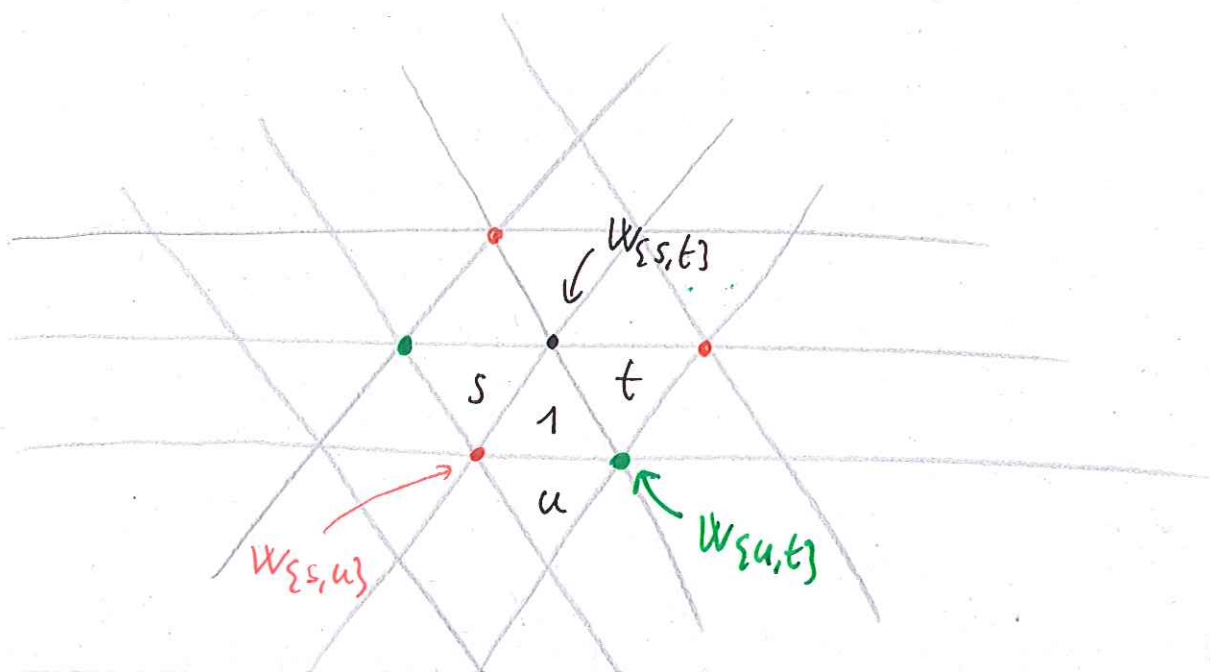 W{s,t}
s
t
1
u
W{s,u}
W{u,t}